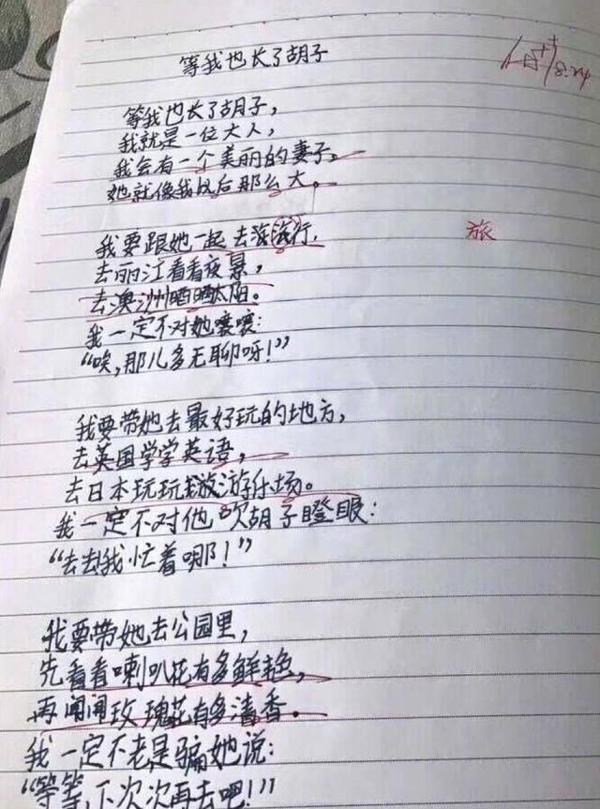 等我也长了胡子
8.24
等我也长了胡子，
我就是一位大人，
我会有一个美丽的妻子，
她就像我以后那么大。
我要跟她一起去旅游行，
旅
去丽江看看夜景，
去澳洲晒晒太阳。
我一定不对她嚷嚷：
“唉，那儿多无聊呀！”
我要带她去最好玩的地方，
去英国学学英语，
去日本玩玩游乐场。
我一定不对他吹胡子瞪眼：
“去去我忙着哪！”
我要带她去公园里，
先看看喇叭花有多鲜艳，
再闻闻玫瑰花有多清香。
我一定不老是骗她说：
“等等，下次次再去吧！”